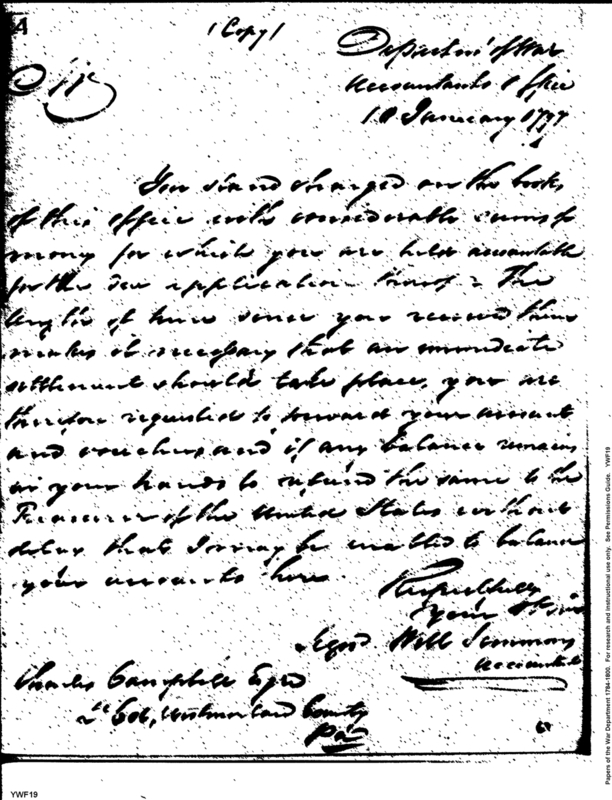 A
(Copy)
Department of War
Accountants Office
10 January 1797
Sir
You stand charged on the books
of this office with considerable sums of
money for which you are held accountable
for the due application thereof. The
length of time since you received them
makes it necessary that an immediate
settlement should take place, you are
therefore requested to forward your account
and vouchers and if any balance remains
in your hands to refund the same to the
Treasurer of the United States without
delay that I may be enabled to balance
your accounts here.
Respectfully
your
Signd Will Simmons
Accountant
Charles Campbell Esqr
Lt Col, Westmorland County
Pa
YWF19
Papers of the War Department 1784-1800. For research and instructional use only. See Permissions Guide. YWF19